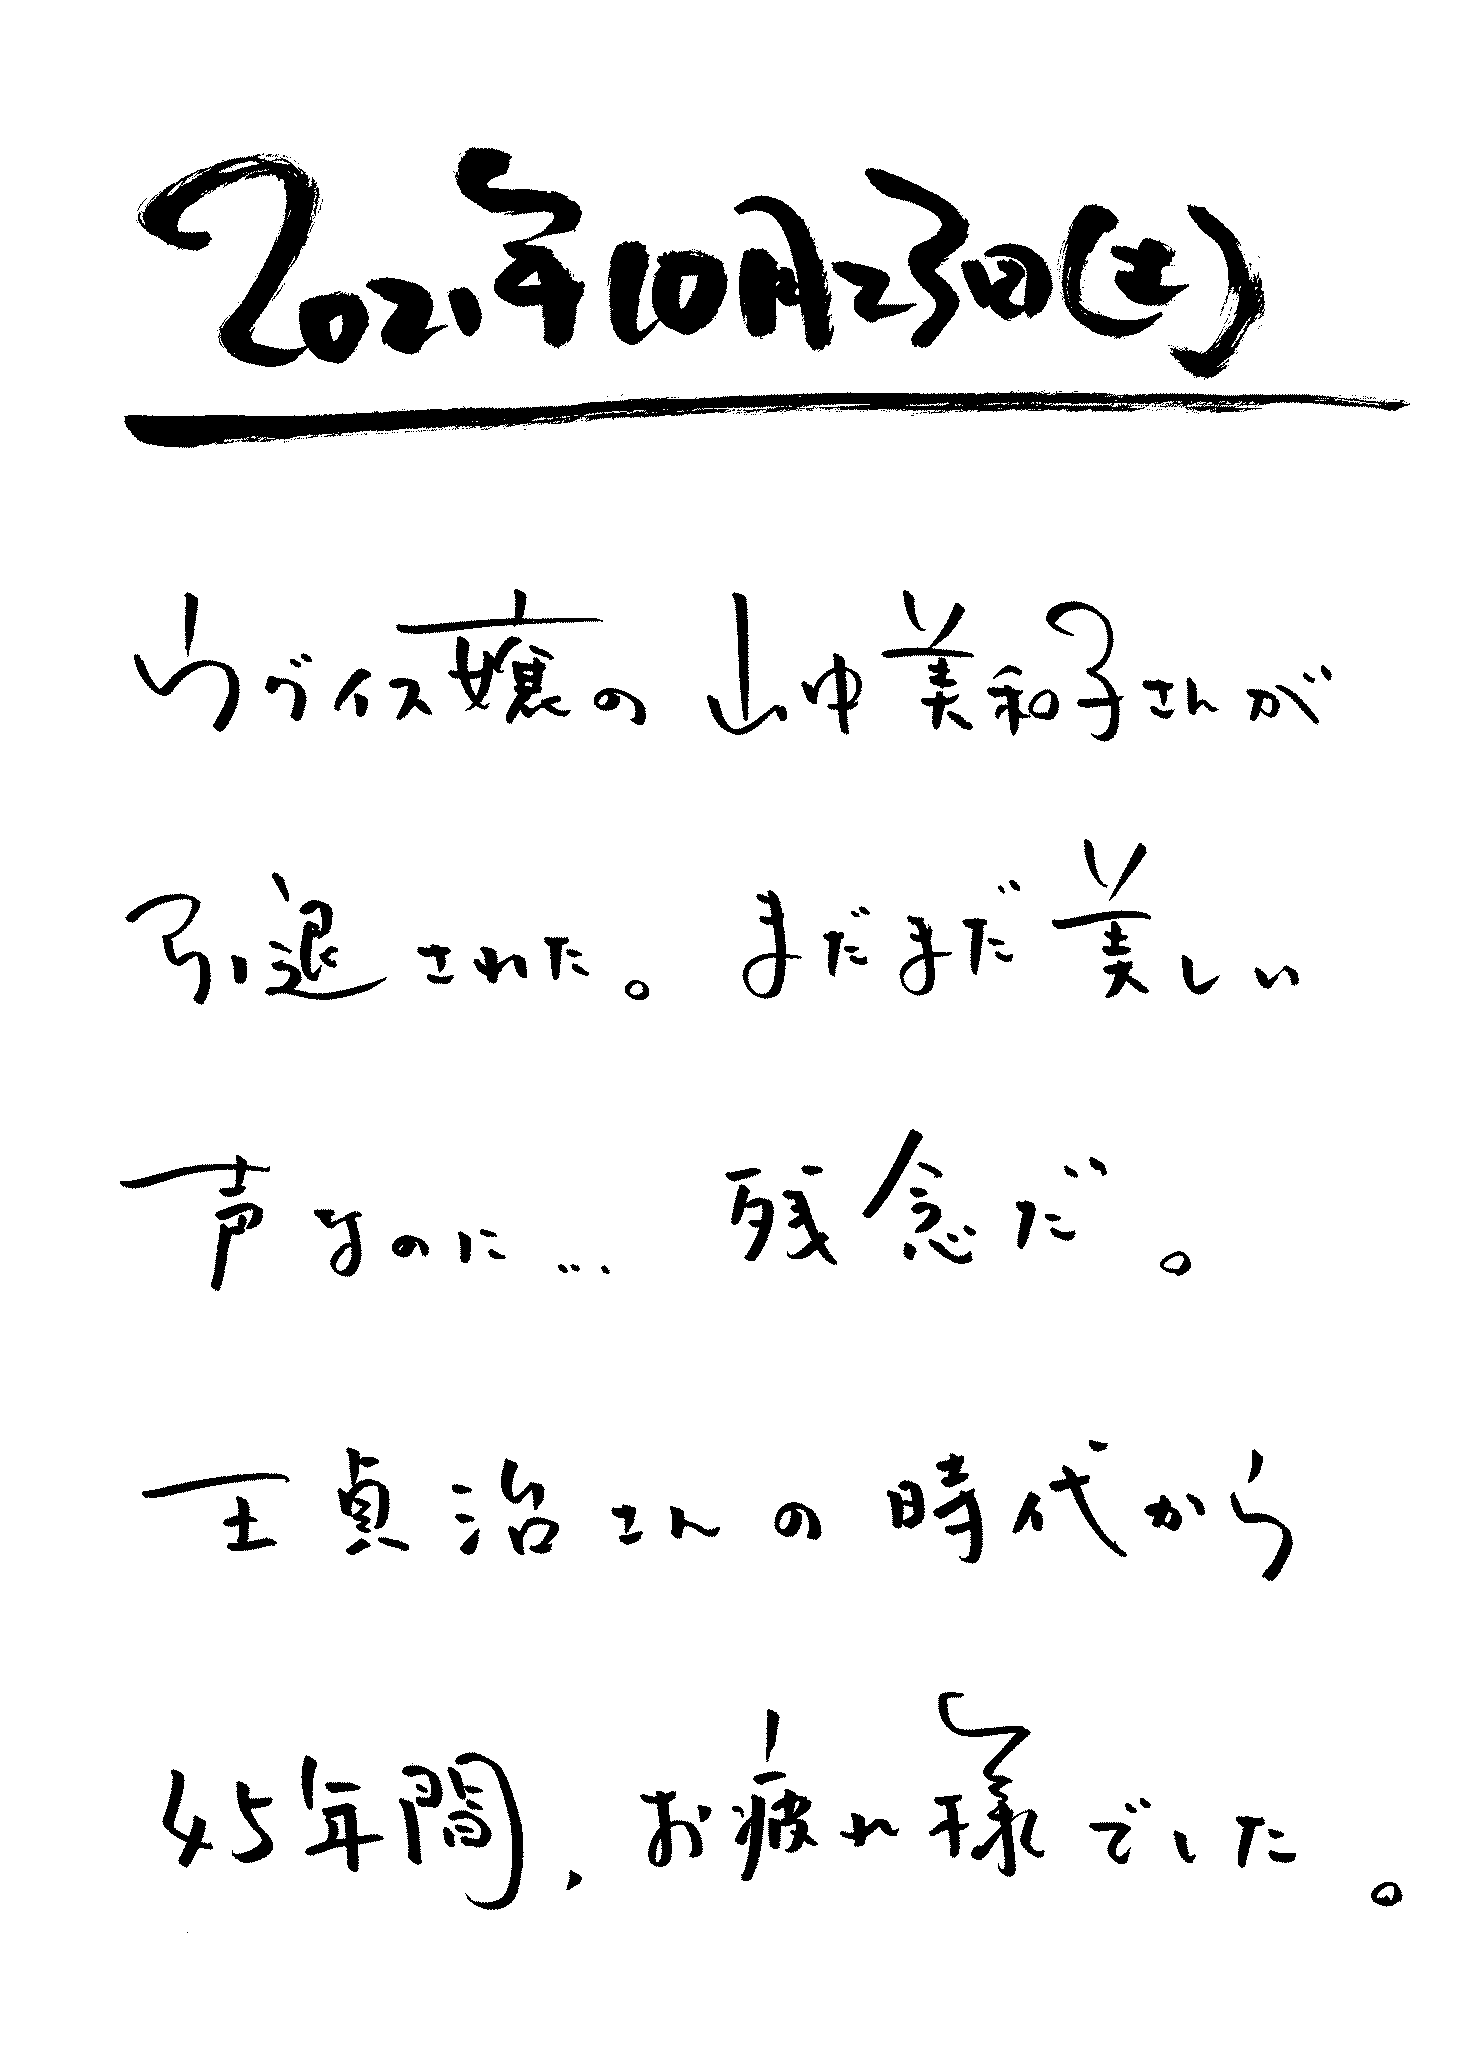 2021年10月23日(土)
ウグイス嬢の山中美和子さんが
引退された。まだまだ美しい
声なのに… 残念だ。
王貞治さんの時代から
45年間、お疲れ様でした。